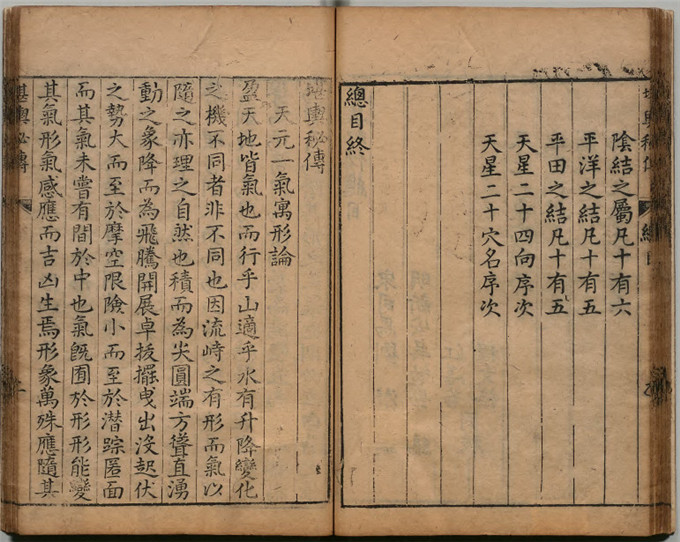 堪輿秘傳 總目
陰結之屬凡十有六
平洋之結凡十有五
平田之結凡十有五
天星二十四向序次
天星二十穴名序次
總目終
堪輿秘傳
天元一氣寓形論
盈天地皆氣也而行乎山適乎水有升降變化
之機不同者非不同也因流峙之有形而氣以
隨之亦理之自然也積而為尖圓端方聳直湧
動之象降而為飛騰開展卓拔擺曳出沒起伏
之勢大而至於摩空限險小而至於潛踪匿面
而其氣未嘗有間於中也氣既囿於形形能變
其氣形氣感應而吉凶生焉形象萬殊應隨其
堪輿秘傳